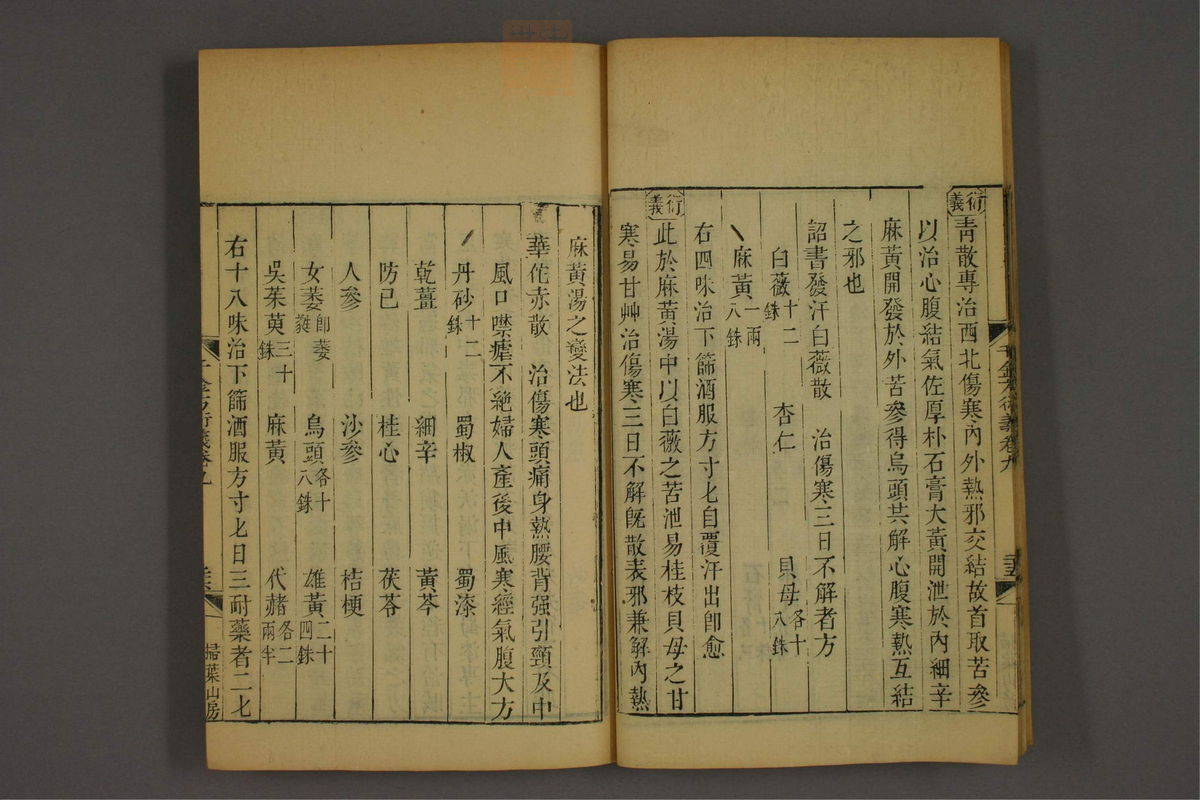 衍義
靑散專治西北傷寒內外熱邪交結故首取苦參
以治心腹結氣佐厚朴石膏大黃開泄於內細辛
麻黃開發於外苦參得烏頭共解心腹寒熱互結
之邪也
詔書發汗白薇散 治傷寒三日不解者方
白薇十二銖 杏仁 貝母各十八銖
麻黃一兩八銖
右四味治下篩酒服方寸匕自覆汗出卽愈
衍義
此於麻黃湯中以白薇之苦泄易桂枝貝母之甘
寒易甘艸治傷寒三日不解旣散表邪兼解內熱
麻黃湯之變法也
華佗赤散 治傷寒頭痛身熱腰背强引頸及中
風口噤瘧不絕婦人產後中風寒經氣腹大方
丹砂十二銖 蜀椒 蜀漆
乾薑 細辛 黃芩
防已 桂心 茯苓
人參 沙參 桔梗
女萎卽萎蕤 烏頭各十八銖 雄黃二十四銖
吳茱萸三十銖 麻黃 代赭各二兩半
右十八味治下篩酒服方寸匕日三耐藥者二匕
千金方衍義卷九
掃葉山房